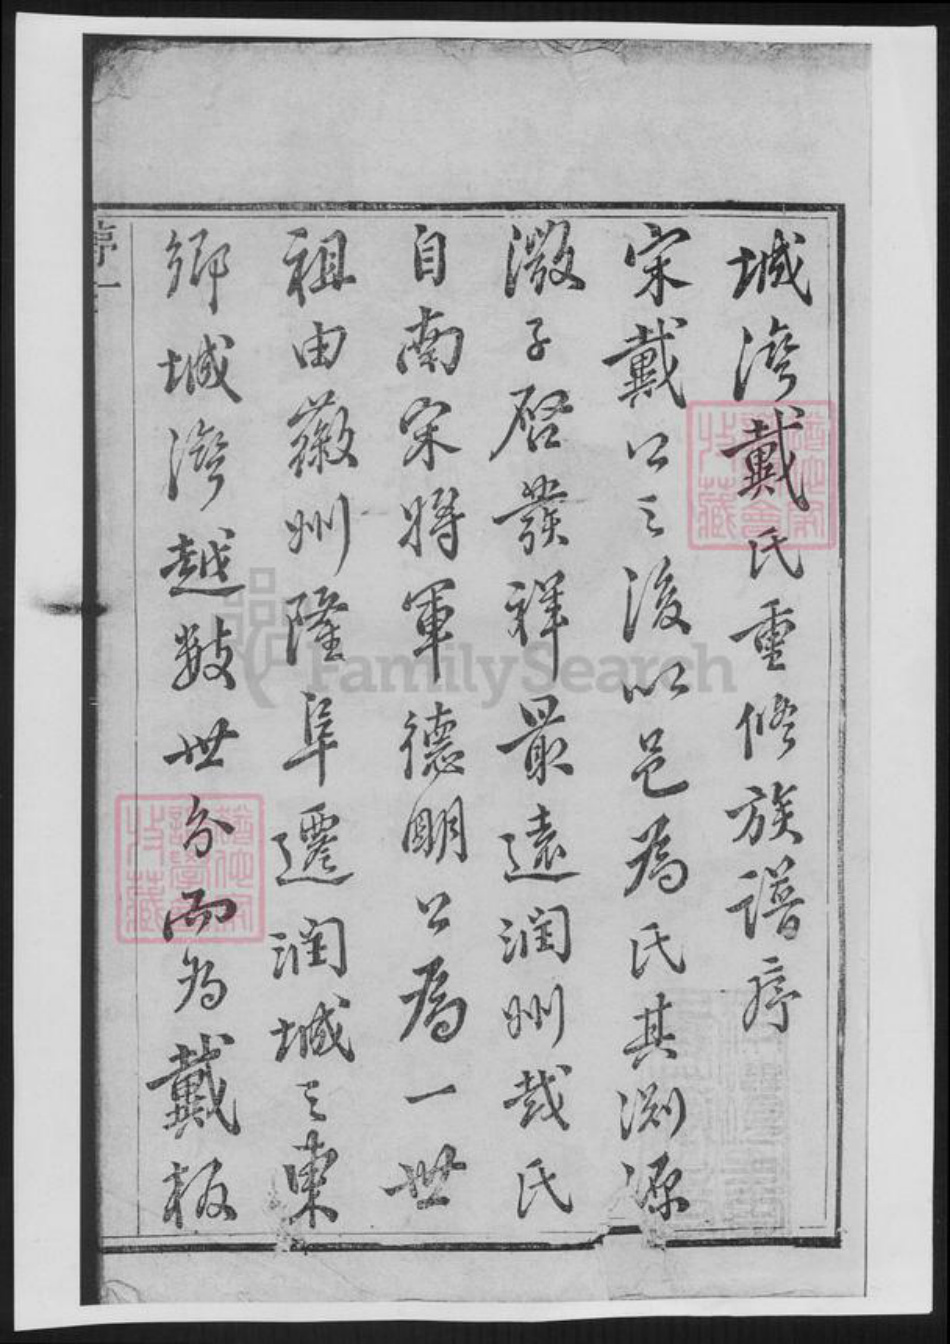 城灣戴氏重修族譜序
宋戴公之後以邑為氏其淵源
微子啟發祥最遠潤州戴氏
自南宋將軍德明公為一世
祖由徽州隆阜遷潤城之東
鄉城灣越數世分而為戴板
序一
FamilySearch